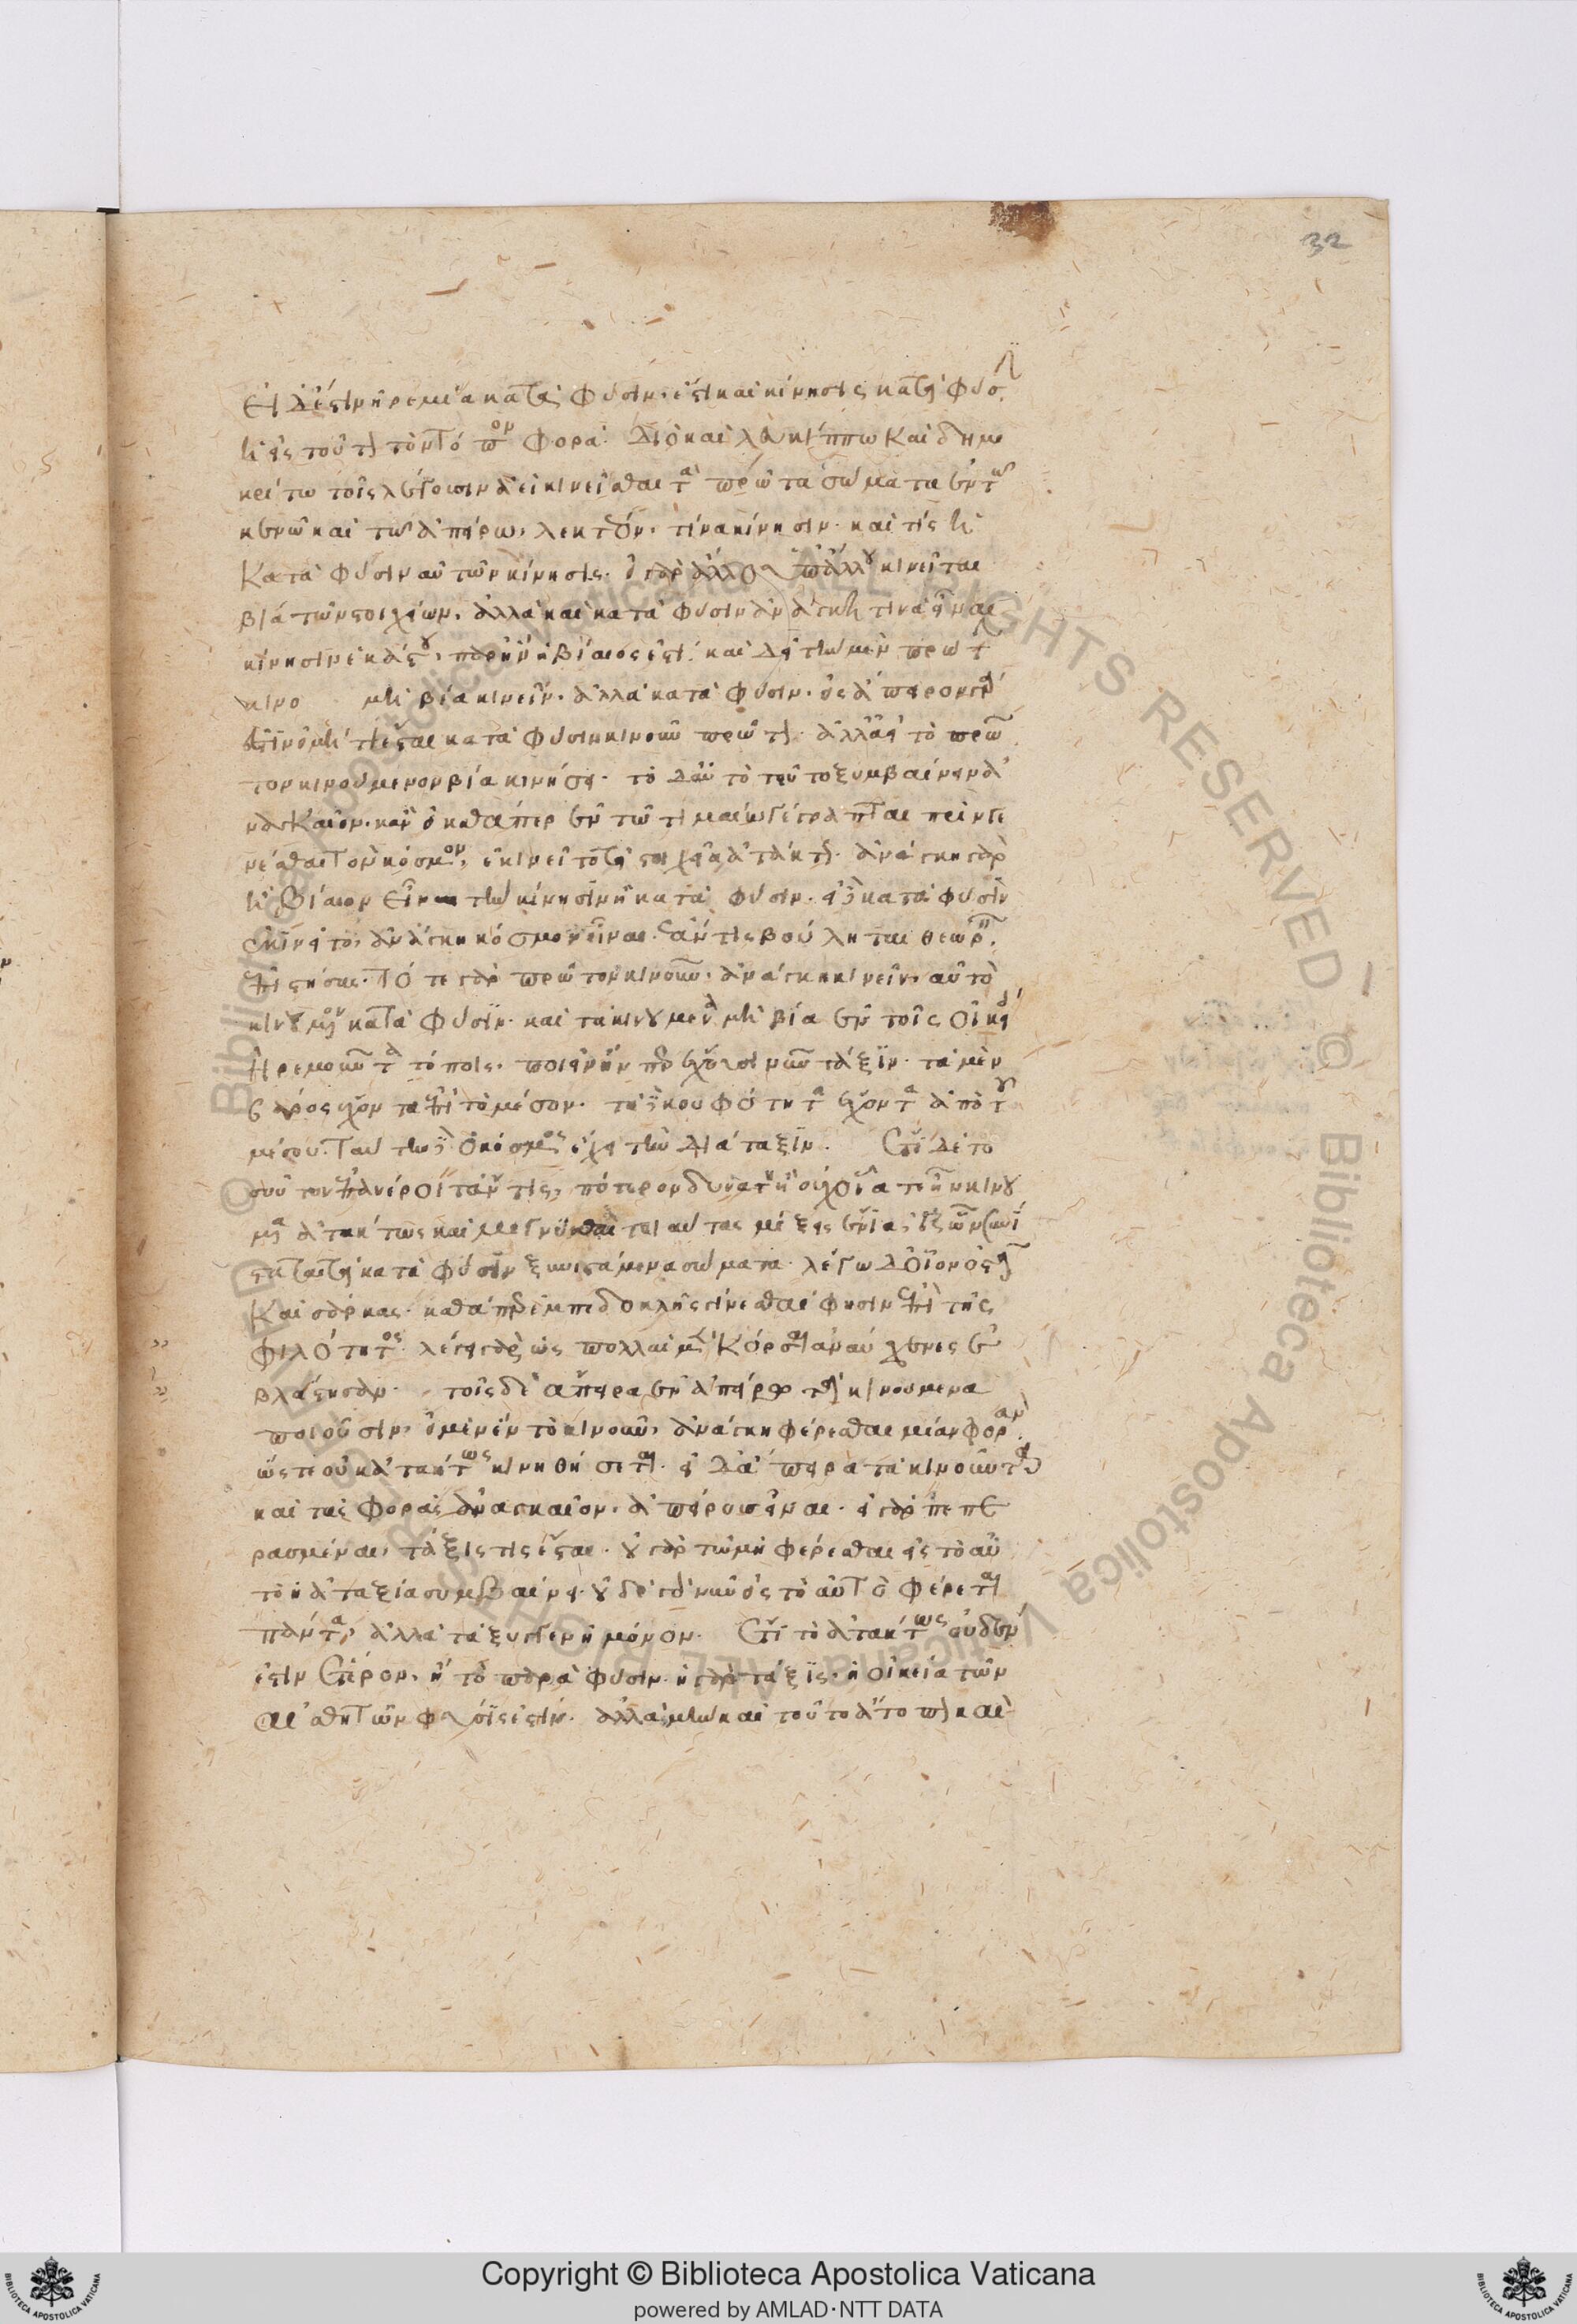 32
Εἰ δ' ἐστὶν ἠρεμία κατὰ φύσιν, ἔστι καὶ κίνησις κατὰ φύσιν
ἡ εἰς τοῦτον τὸν τόπον φορά. Διὸ καὶ λευκίππω καὶ δημο
κρίτω τοῖς λέγουσιν ἀεὶ κινεῖσθαι τὰ πρῶτα σώματα ἐν τῶ
κενῶ καὶ τῶ ἀπείρω, λεκτέον, τίνα κίνησιν. καὶ τίς ἡ
Κατὰ φύσιν αὐτῶν κίνησις. εἰ γὰρ ἄλλο ὑπ' ἄλλου κινεῖται
βία τῶν στοιχείων, ἀλλὰ καὶ κατὰ φύσιν ἀνάγκη τινὰ εἶναι
κίνησιν ἑκάστου, παρ' ἣν ἡ βίαιός ἐστι. καὶ δεῖ τὴν μὲν πρώτην
κινο μὴ βία κινεῖν, ἀλλὰ κατὰ φύσιν. εἰς ἄπειρον γὰρ
εἶσιν εἰ μή τι ἔσται κατὰ φύσιν κινοῦν πρῶτον. ἀλλ' ἀεὶ τὸ πρῶ
τον κινούμενον βία κινήσει. τὸ δ' αὐτὸ τοῦτο ξυμβαίνειν ἀ
ναγκαῖον. κἂν εἰ καθάπερ ἐν τῶ τιμαίω γέγραπται πρὶν γε
νέσθαι τὸν κόσμον, ἐκινεῖτο τὰ στοιχεῖα ἀτάκτως. ἀνάγκη γὰρ
ἢ βίαιον εἶναι τὴν κίνησιν ἢ κατὰ φύσιν. εἰ δὲ κατὰ φύσιν
ἐκινεῖτο, ἀνάγκη κόσμον εἶναι. ἐάν τις βούληται θεωρεῖν
ἐπιστήσας. Τό τε γὰρ πρῶτον κινοῦν, ἀνάγκη κινεῖν, αὐτὸ
κινούμενον κατὰ φύσιν. καὶ τὰ κινούμενα μὴ βία ἐν τοῖς οἰκείοις
ἠρεμοῦντα τόποις. ποιεῖν ἥνπερ ἔχουσι νῦν τάξιν. τὰ μὲν
βάρος ἔχοντα ἐπὶ τὸ μέσον. τὰ δὲ κουφότητα ἔχοντα ἀπὸ τοῦ
μέσου. Ταύτην δ' ὁ κόσμος ἔχει τὴν διάταξιν. Ἔτι δὲ το
σοῦτον ἐπανέροιτ' ἄν τις, πότερον δυνατὸν ἢ οὐχ οἷόν τε ἦν κινού
μενα ἀτάκτως καὶ μίγνυσθαι τοιαύτας μίξεις ἐνίας ἐξ ὧν συνί
σταται τὰ κατὰ φύσιν ξυνιστάμενα σώματα. λέγω δ' οἷον ὀστᾶ
Καὶ σάρκας. καθάπερ ἐμπεδοκλῆς γίνεσθαί φησιν ἐπὶ τῆς
φιλότητος. λέγει γὰρ ὡς πολλαὶ μὲν κόρσαι ἀναύχενες ἐ
βλάστησαν. τοῖς δὲ ἄπειρα ἐν ἀπείρω τὰ κινούμενα
ποιοῦσιν, εἰ μὲν ἓν τὸ κινοῦν, ἀνάγκη φέρεσθαι μίαν φοράν
ὥστε οὐκ ἀτάκτως κινηθήσεται. εἰ δ' ἄπειρα τὰ κινοῦντα
καὶ τὰς φορὰς ἀναγκαῖον, ἀπείρους εἶναι. εἰ γὰρ πεπε
ρασμέναι, τάξις τις ἔσται. οὐ γὰρ τῶ μὴ φέρεσθαι εἰς τὸ αὐ
τὸ ἡ ἀταξία συμβαίνει. οὐδὲ γὰρ νῦν εἰς τὸ αὐτὸ φέρεται
πάντα, ἀλλὰ τὰ ξυγγενῆ μόνον. Ἔτι τὸ ἀτάκτως οὐδέν
ἐστιν ἕτερον, ἢ τὸ παρὰ φύσιν. ἡ γὰρ τάξις, ἡ οἰκεία τῶν
αἰσθητῶν φύσις ἐστίν. ἀλλὰ μὴν καὶ τοῦτο ἄτοπον καὶ
Copyright © Biblioteca Apostolica Vaticana
powered by AMLAD·NTT DATA